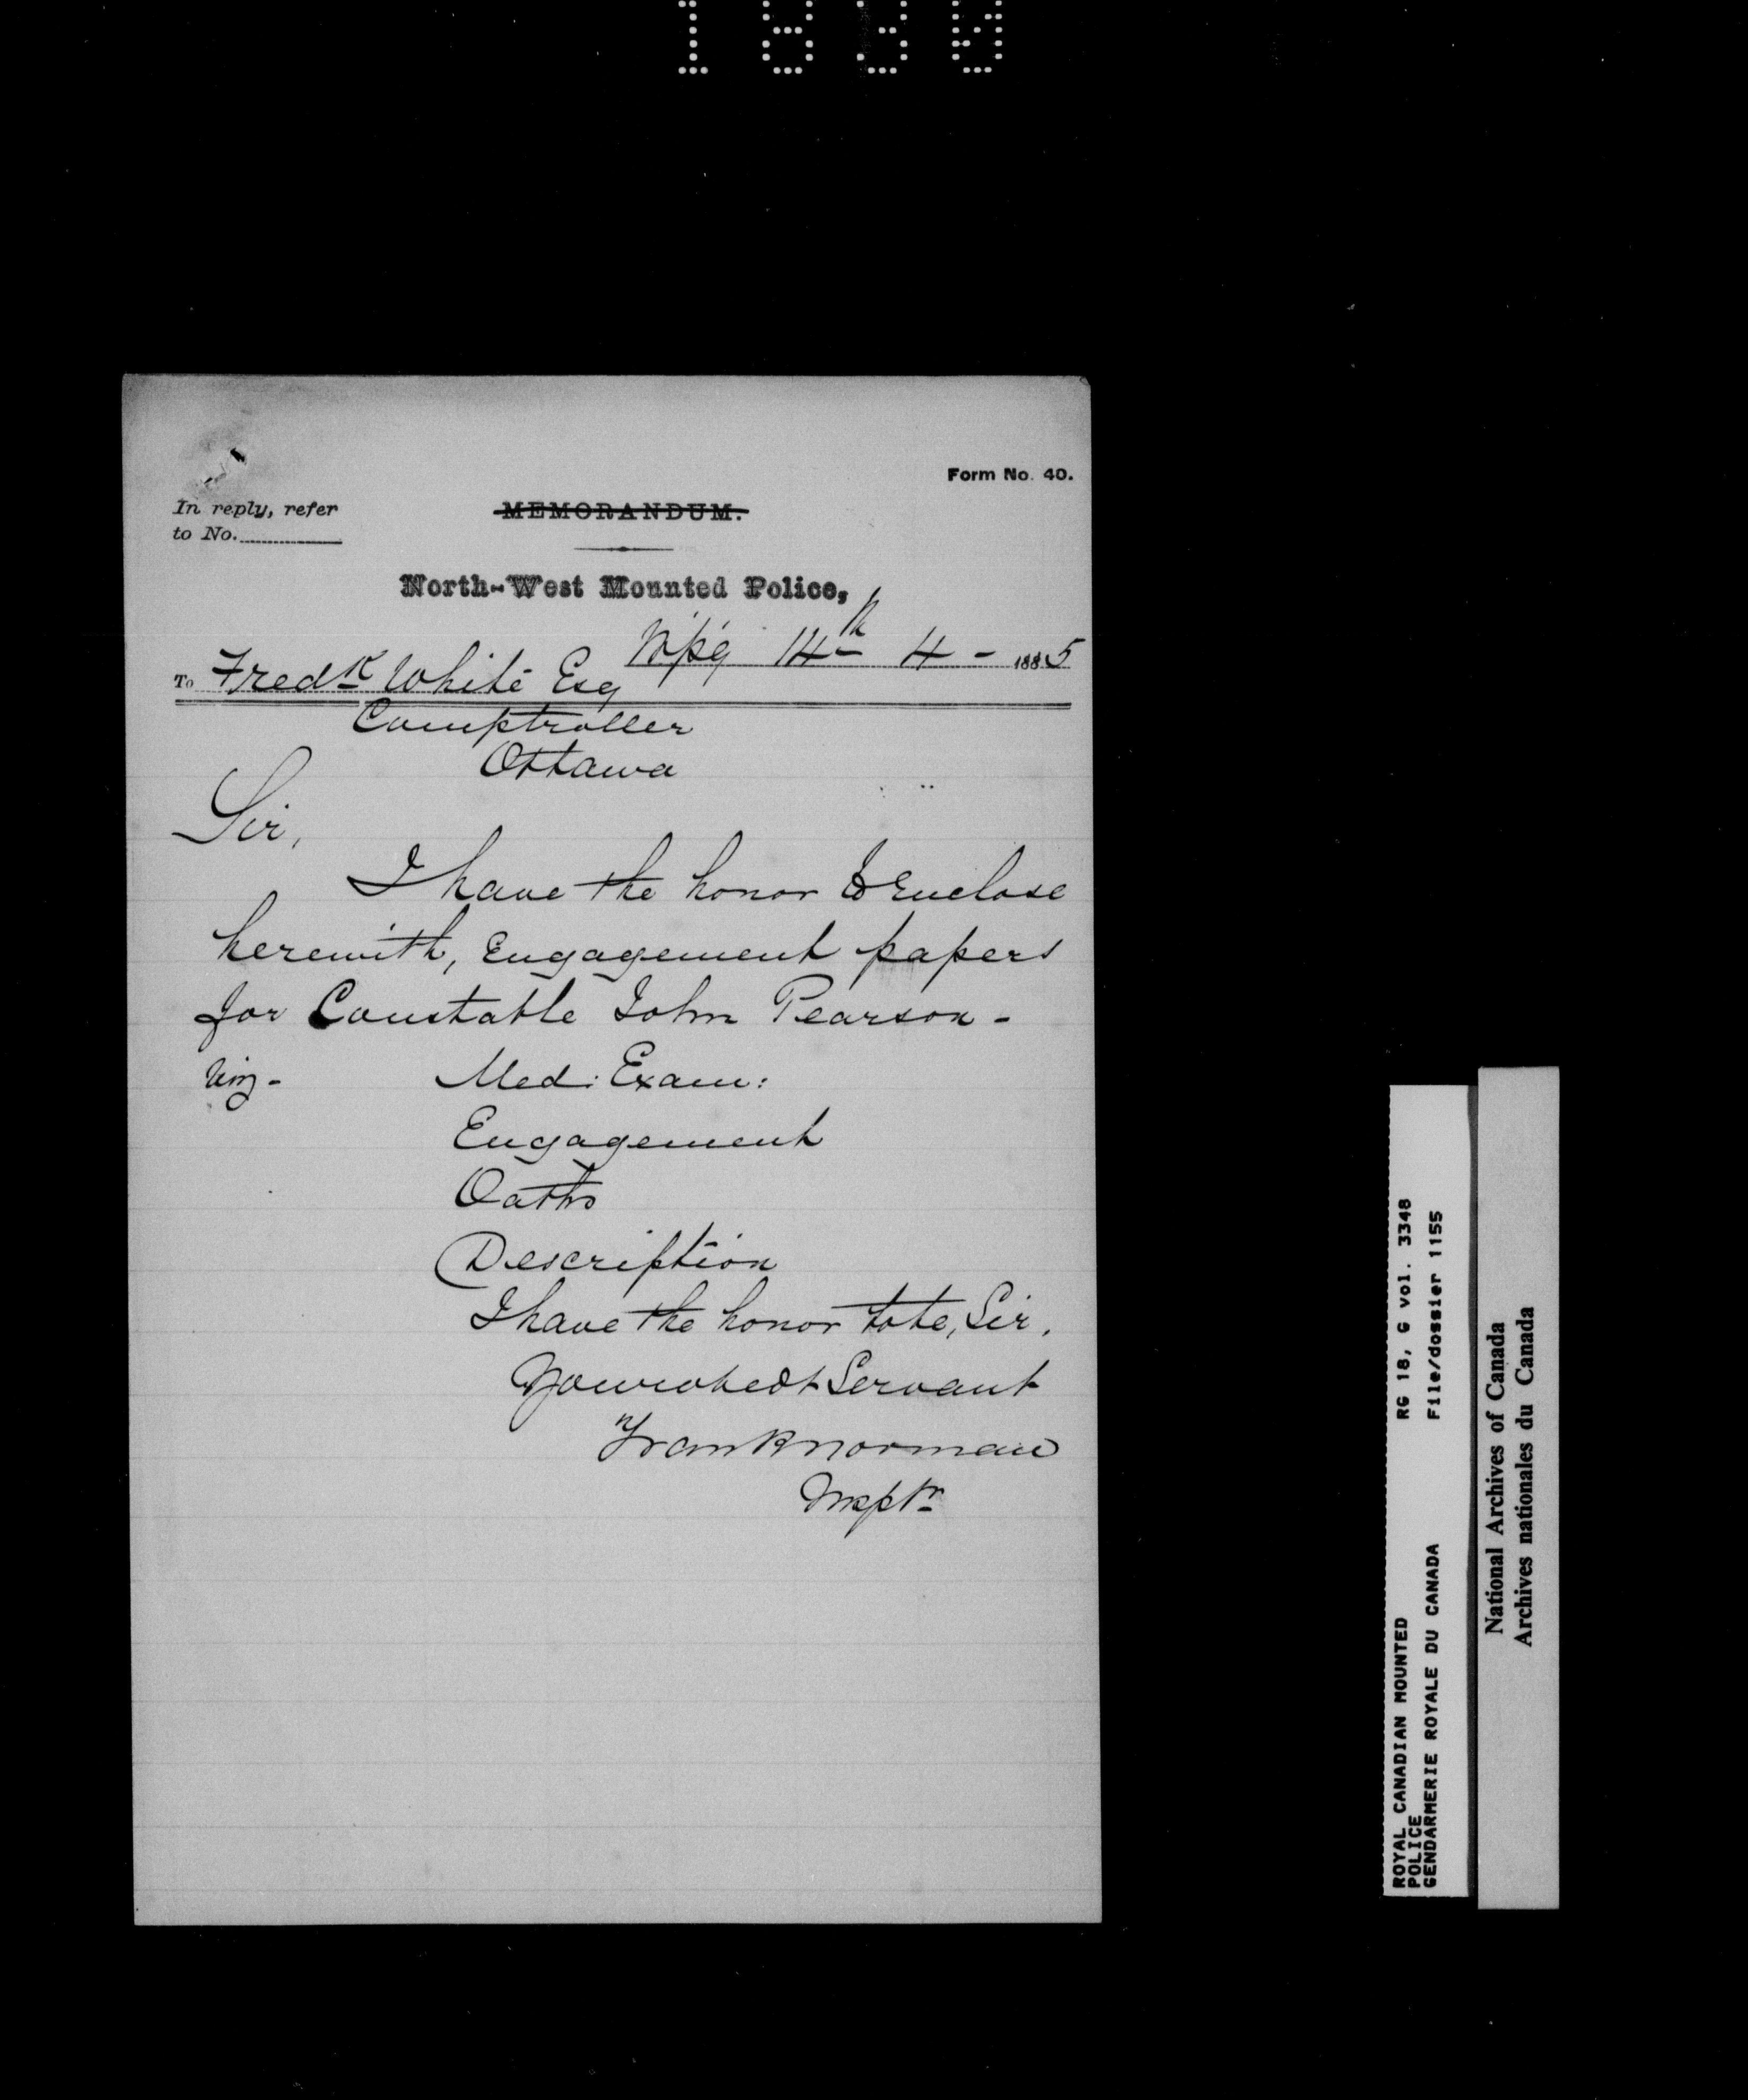 Form No. 40.
In reply, refer
to No.
MEMORANDUM.
North-West Mounted Police,
Wpg 14th 4 - 1885
To Fredk White Esq
Comptroller
Ottawa
Sir,
I have the honor to Enclose
herewith, Engagement papers
for Constable John Pearson -
viz - Med: Exam:
Engagement
Oaths
Description
I have the honor to be, Sir,
Your obedt Servant
Frank Norman
Insptr
ROYAL CANADIAN MOUNTED POLICE RG 18, G vol. 3348
GENDARMERIE ROYALE DU CANADA File/dossier 1155
National Archives of Canada
Archives nationales du Canada